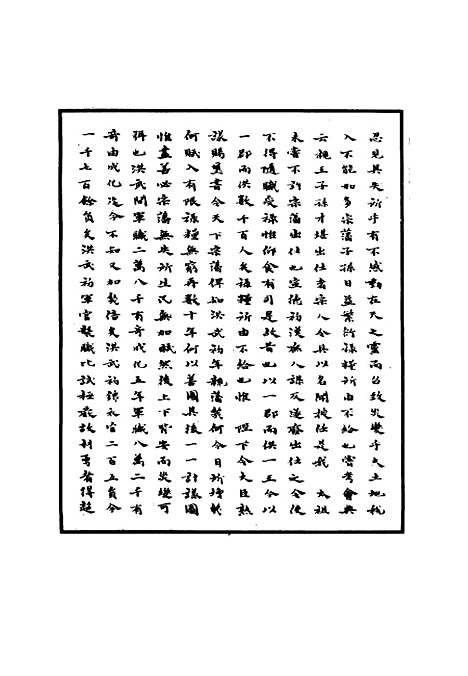 忍見其失所乎有不感動在天之靈而召致災變乎夫土地稅
入不能如多宗藩子孫日益繁衍祿糧所由不給也嘗考會典
云親王子孫才堪出任者宗人令具以名聞授任是我　太祖
未嘗不許宗藩出仕也宣德初漢庶人謀反遂廢出仕之令使
不得隨職受祿惟仰食有司是故昔也以一郡而供一王今以
一郡而供數千百人矣祿糧所由不給也惟　陛下令大臣熟
議賜璽書令天下宗藩俾知洪武初年親藩幾何今日所增幾
何賦入有限祿糧無窮再數十年何以善圖其後一一計議圖
惟盡善必宗藩無失所生民無加賦然後上下皆安而災變可
弭也洪武間軍職二萬八千有奇成化五年軍職八萬二千有
奇由成化迄今不知又加幾倍矣洪武初錦衣官二百五員今
一千七百餘員矣洪武初軍官襲職比試極嚴故材勇者得超